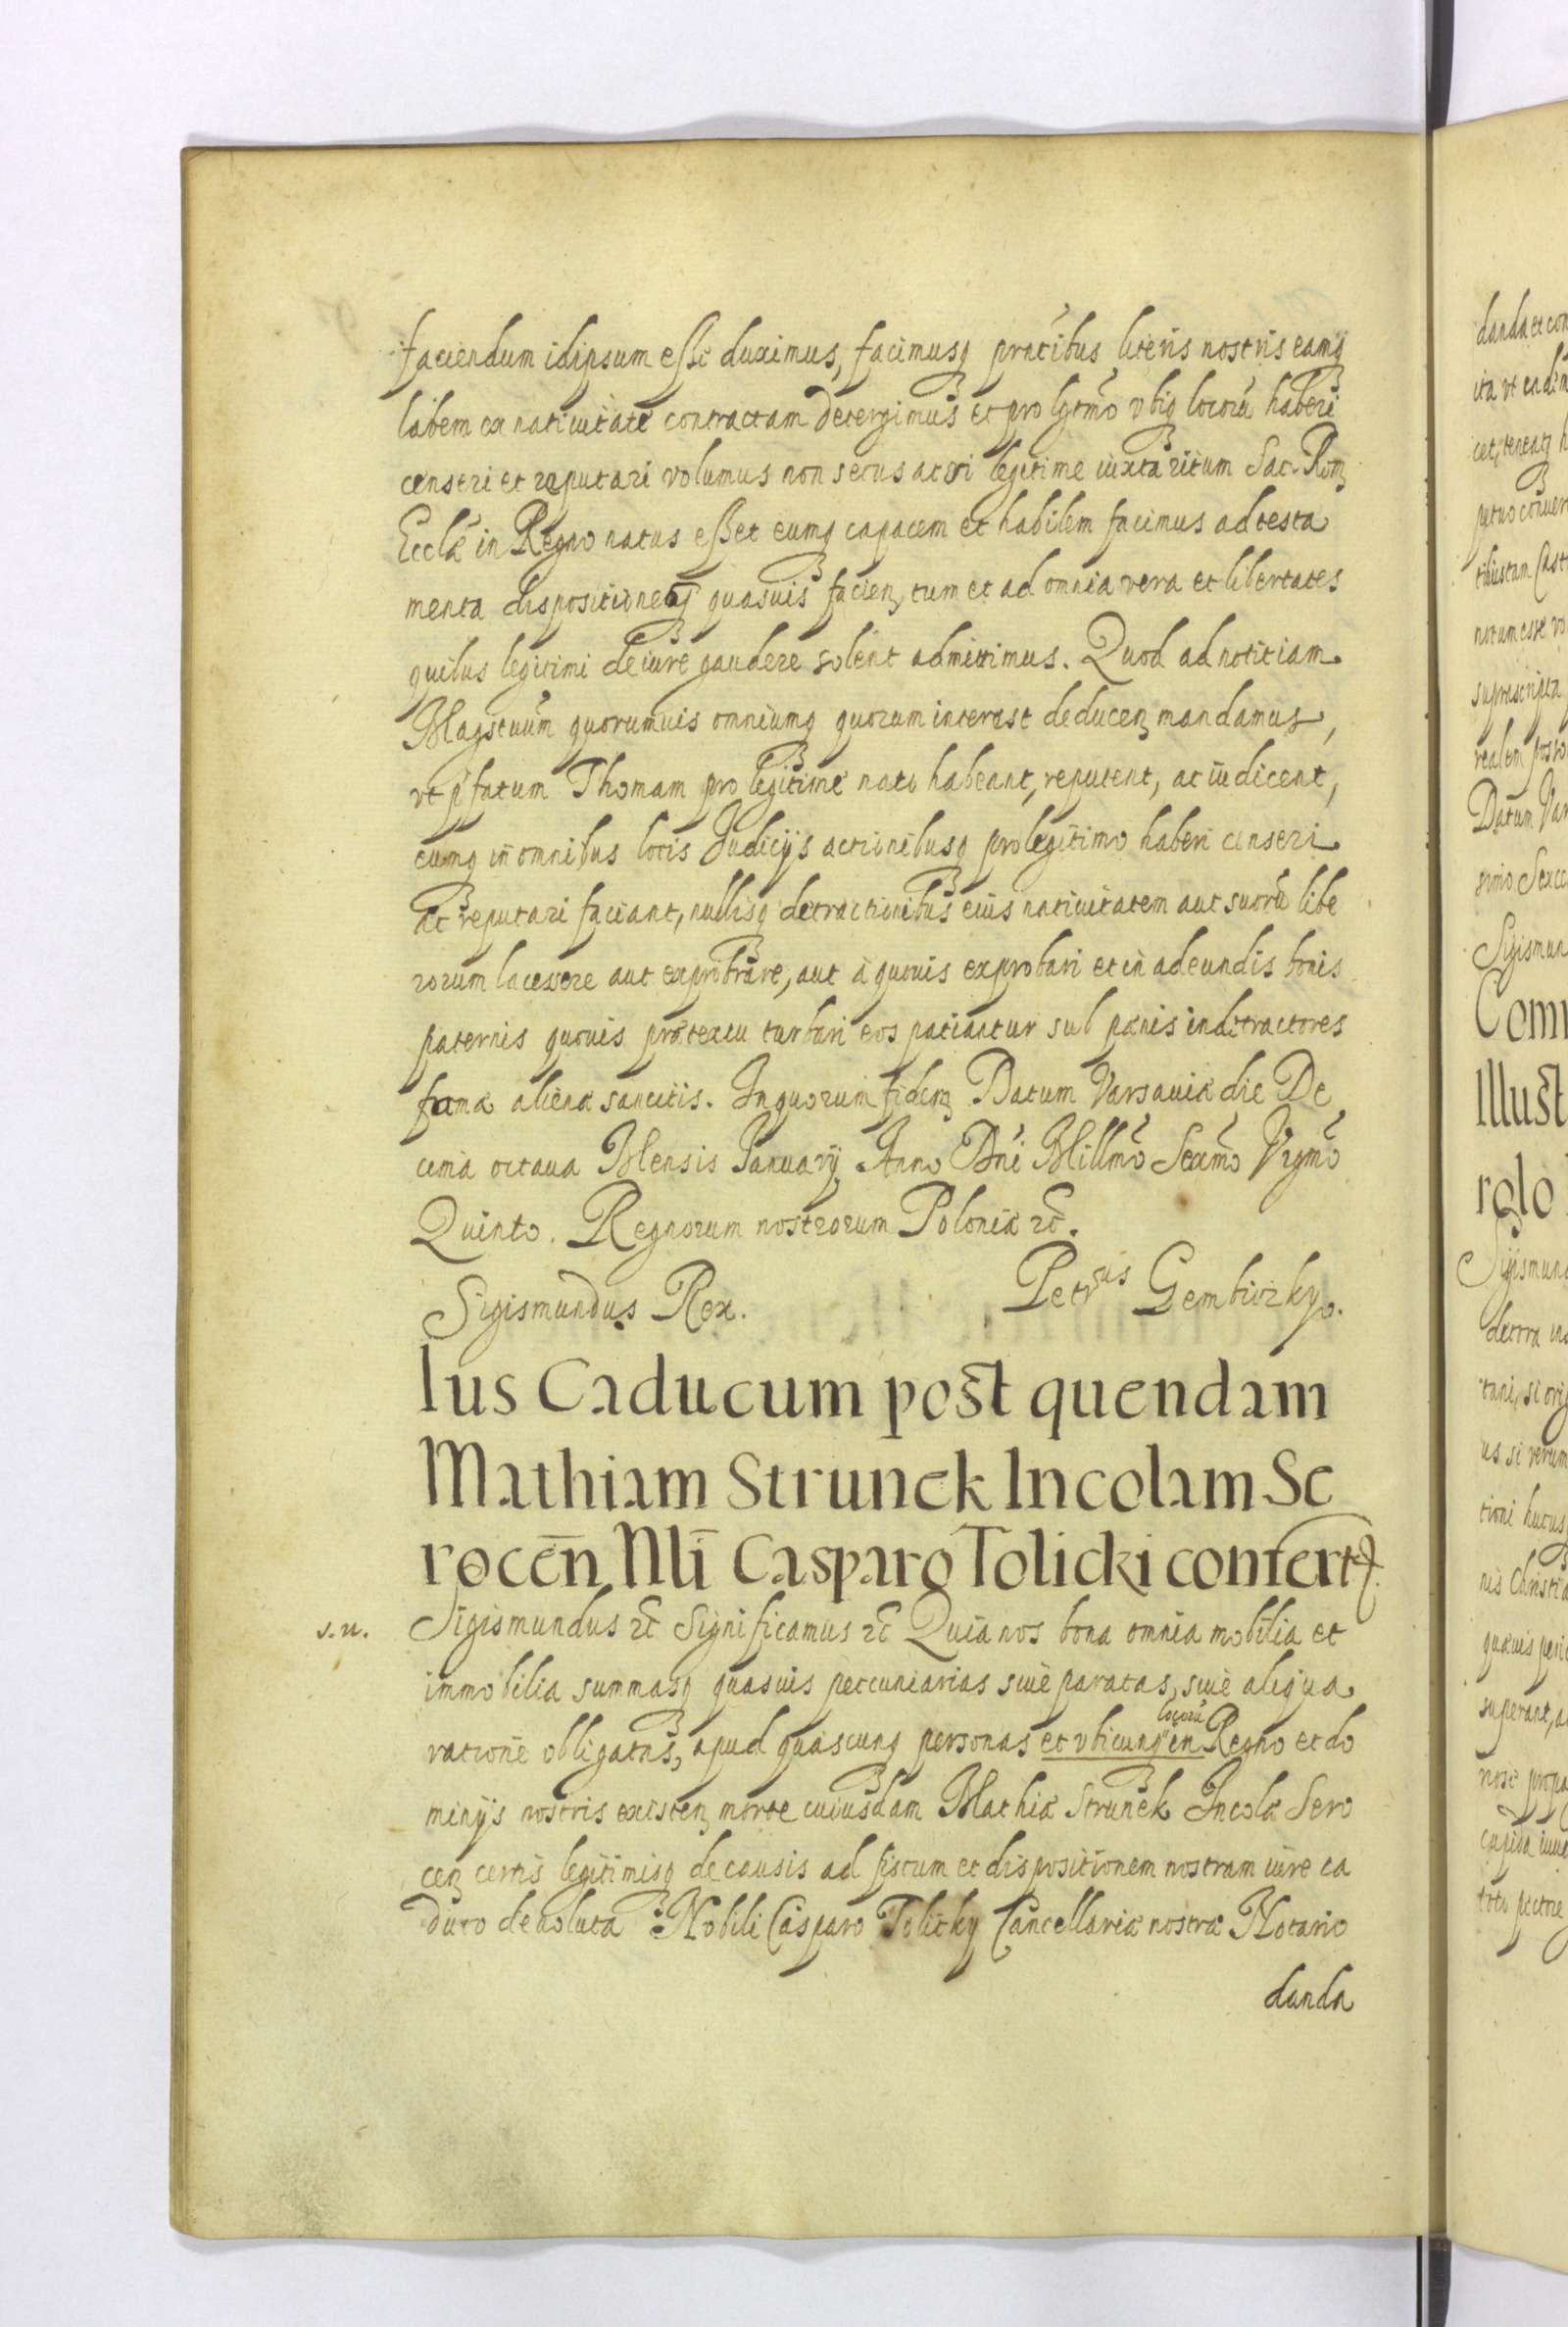 faciendum idipsum esse duximus, facimusq pratibus literis nostris eamq
labem ex natiuitate contractam detergimus et pro lgtmo vbiq locorū haberi
censeri et reputari volumus non secus ac si legitime iuxta ritum Sac. Rom
Eccłæ in Regno natus esset eumq capacem et habilem facimus ad testa
menta dispositionesq quasuis facien, tum et ad omnia vera et libertates
quibus legitimi de iure gaudere solent admittimus. Quod ad notitiam
Magstuum quorumuis omniumq quorum interest deducen mandamus,
vt pfatum Thomam pro legitime nato habeant, reputent, ac iudicent,
eumq in omnibus locis Judicijs actionibusq pro legitimo haberi censeri
ac reputari faciant, nullisq detractionibus eius natiuitatem aut suorū libe
rorum lacessere aut exprobrare, aut à quouis exprobari et in adeundis bonis
paternis quouis prætextu turbari eos patiantur sub pœnis in detractores
famæ alienæ sancitis. In quorum fidem Datum Varsauiæ die De
cima octaua Mensis Januarij Anno Dni Millmo Sexmo Vigmo
Quinto. Regnorum nostrorum Poloniæ etc.
Sigismundus Rex. Petrus Gembiczky.
Ius Caducum post quendam
Mathiam Strunek Incolam Se
rocēn Nlī Casparo Tolicki confert
s. n. Sigismundus etc Significamus etc Quia nos bona omnia mobilia et
immobilia summasq quasuis peccuniarias siue paratas, siue aliqua
ratione obligatas, apud quascunq personas et vbicunq locorū in Regno et do
minijs nostris existen morte cuiusdam Mathiæ Strunek Incolæ Sero
cen certis legitimisq de causis ad fiscum et dispositionem nostram iure ca
duco deuoluta Nobili Casparo Tolicky Cancellariæ nostræ Notario
danda